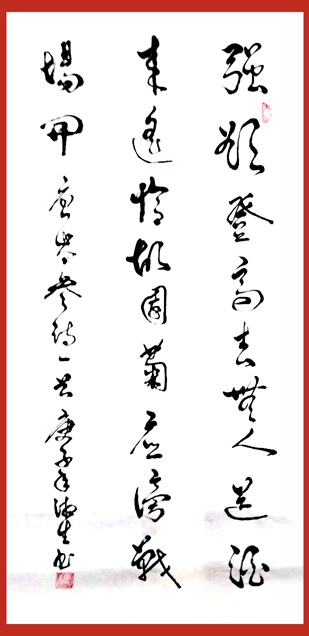 强欲登高去无人送酒
来遥怜故园菊应傍战
场开
唐岑参诗一首庚子年海生书